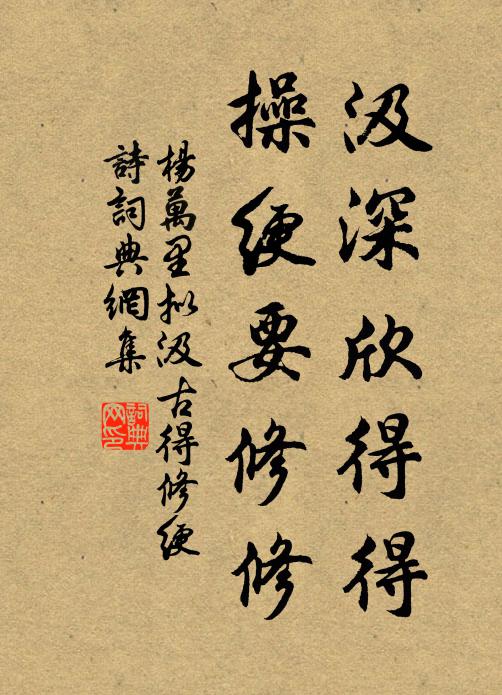 汲深欣得得
操綆要修修
楊萬里拟汲古得修綆
詩詞典網集
詞典
网印